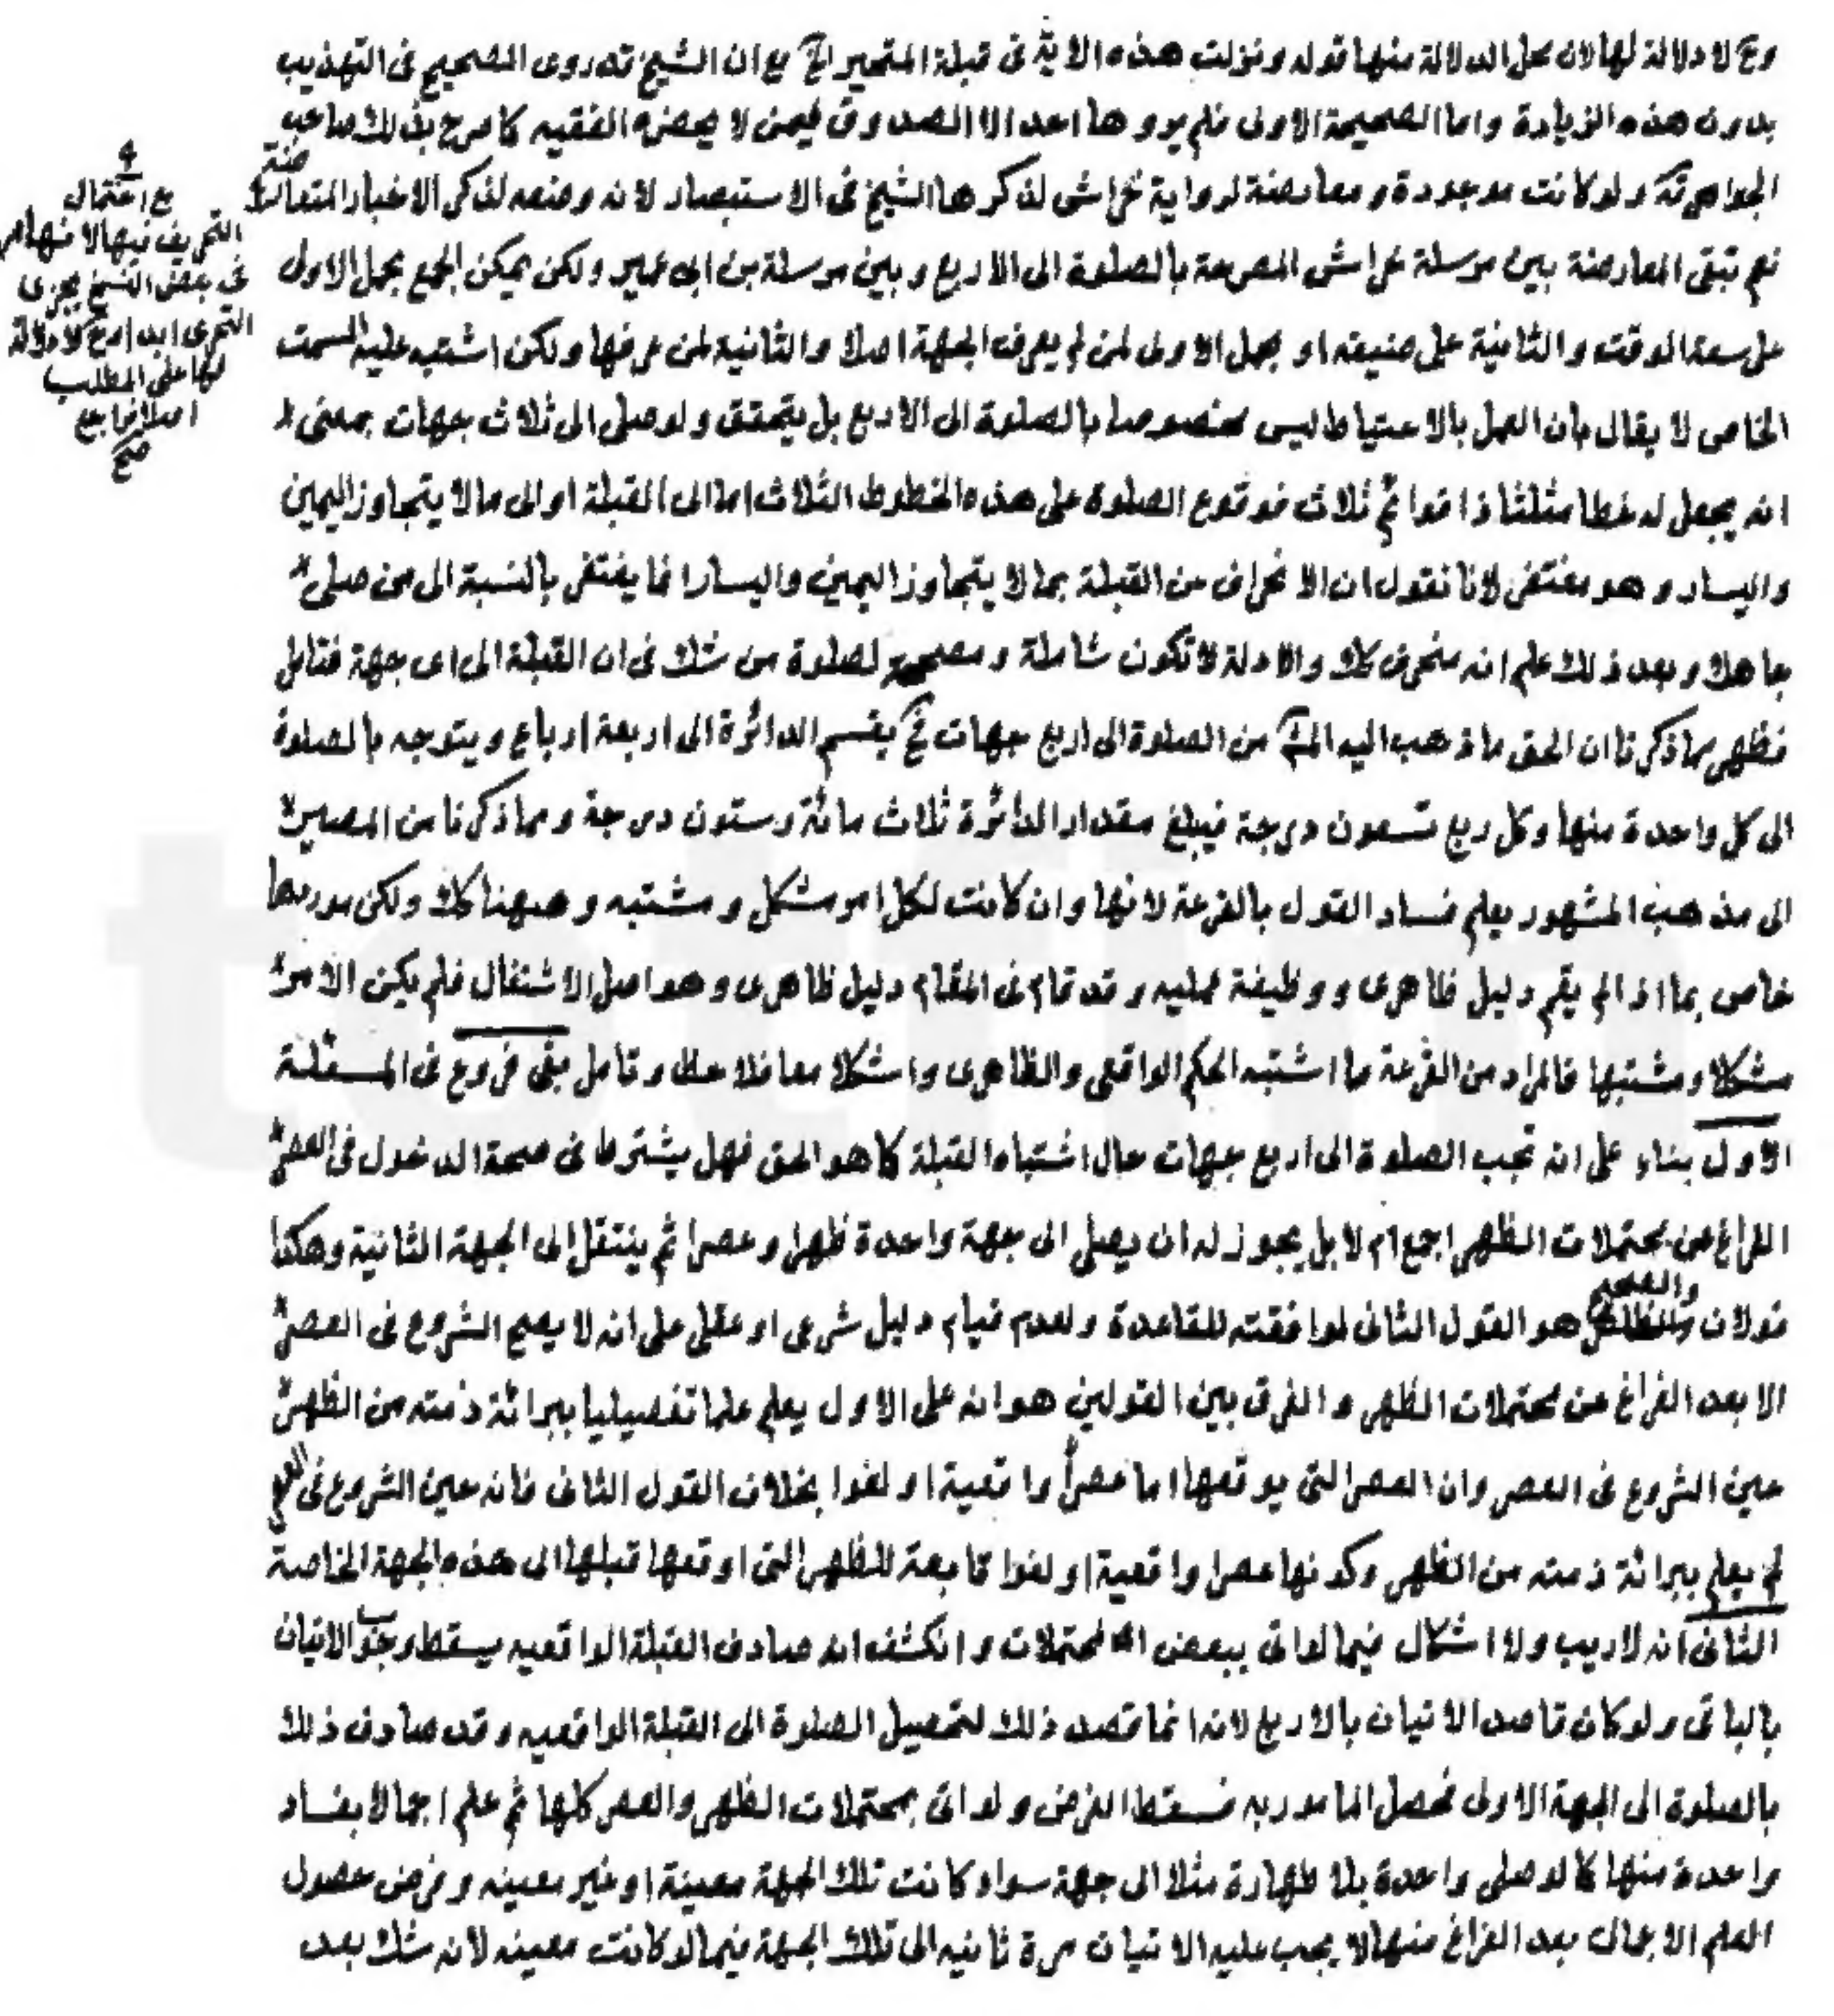 وح لا دلالة لها لان محل الدلالة منها قوله ونزلت هذه الاية فى قبلة المتحير الخ مع ان الشيخ قد روى الصحيح فى التهذيب
بدون هذه الزيادة واما الصحيحة الاولى فلم يروها احد الا الصدوق فيمن لا يحضره الفقيه كما صرح بذلك صاحب
الجواهر قده ولو كانت موجودة ومعارضة لرواية خراش لذكرها الشيخ فى الاستبصار لانه وضعه لذكر الاخبار المتعارضة
نعم تبقى المعارضة بين مرسلة خراش المصرحة بالصلوة الى الاربع وبين مرسلة بن ابى عمير ولكن يمكن الجمع بحمل الاولى
على سعة الوقت والثانية على ضيقه او بحمل الاولى لمن لم يعرف الجهة اصلا والثانية لمن عرفها ولكن اشتبه عليه السمت
الخاص لا يقال بان العمل بالاحتياط ليس مخصوصا بالصلوة الى الاربع بل يتحقق ولو صلى الى ثلاث جهات بمعنى
انه يجعل له خطا مثلثا ذا قوائم ثلاث فوقوع الصلوة على هذه الخطوط الثلاث اما الى القبلة او الى ما لا يتجاوز اليمين
واليسار وهو مغتفر لانا نقول ان الانحراف من القبلة بما لا يتجاوز اليمين واليسار انما يغتفر بالنسبة الى من صلى
جاهلا وبعد ذلك علم انه منحرف كك والادلة لا تكون شاملة ومصححة لصلوة من شك فى ان القبلة الى اى جهة فتامل
فظهر مما ذكرنا ان الحق ما ذهب اليه المش من الصلوة الى اربع جهات فح يقسم الدائرة الى اربعة ارباع ويتوجه بالصلوة
الى كل واحدة منها وكل ربع تسعون درجة فيبلغ مقدار الدائرة ثلاث مائة وستون درجة ومما ذكرنا من المصير
الى مذهب المشهور يعلم فساد القول بالقرعة لانها وان كانت لكل امر مشكل ومشتبه وههنا كك ولكن موردها
خاص بما اذا لم يقم دليل ظاهرى ووظيفة عمليه وقد قام فى المقام دليل ظاهرى وهو اصل الاشتغال فلم يكن الامر
مشكلا ومشتبها فالمراد من القرعة ما اشتبه الحكم الواقعى والظاهرى واشكلا معا فلاحظ وتامل بقى فروع فى المسئلة
الاول بناء على انه تجب الصلوة الى اربع جهات حال اشتباه القبلة كما هو الحق فهل يشترط فى صحة الدخول فى العصر
الفراغ من محتملات الظهر اجمع ام لا بل يجوز له ان يصلى الى جهة واحدة ظهرا وعصرا ثم ينتقل الى الجهة الثانية وهكذا
قولان والصحيح هو القول الثانى لموافقته للقاعدة ولعدم قيام دليل شرعى او عقلى على انه لا يصح الشروع فى العصر
الا بعد الفراغ من محتملات الظهر والفرق بين القولين هو انه على الاول يعلم علما تفصيليا ببرائة ذمته من الظهر
حين الشروع فى العصر وان العصر التى يوقعها اما عصرا واقعية او لغوا بخلاف القول الثانى فانه حين الشروع فى العصر
لم يعلم ببرائة ذمته من الظهر وكونها عصرا واقعية او لغوا تابعة للظهر التى اوقعها قبلها الى هذه الجهة الخاصة
الثانى انه لا ريب ولا اشكال فيما لو اتى ببعض المحتملات وانكشف انه صادف القبلة الواقعيه يسقط وجوب الاتيان
بالباقى ولو كان قاصد الاتيان بالاربع لانه انما قصد ذلك لتحصيل الصلوة الى القبلة الواقعيه وقد صادف ذلك
بالصلوة الى الجهة الاولى فحصل المامور به فسقط الغرض ولو اتى بمحتملات الظهر والعصر كلها ثم علم اجمالا بفساد
واحدة منها كما لو صلى واحدة بلا طهارة مثلا الى جهة سواء كانت تلك الجهة معينة او غير معينه وفرض حصول
العلم الاجمالى بعد الفراغ منها لا يجب عليه الاتيان مرة ثانيه الى تلك الجهة فيما لو كانت معينه لانه شك بعد
مع احتمال
التحريف فيها لانها
فى بعض النسخ يجزى
التحرى ابدا وح لا دلالة
لها على المطلب
اصلا فراجع
صح